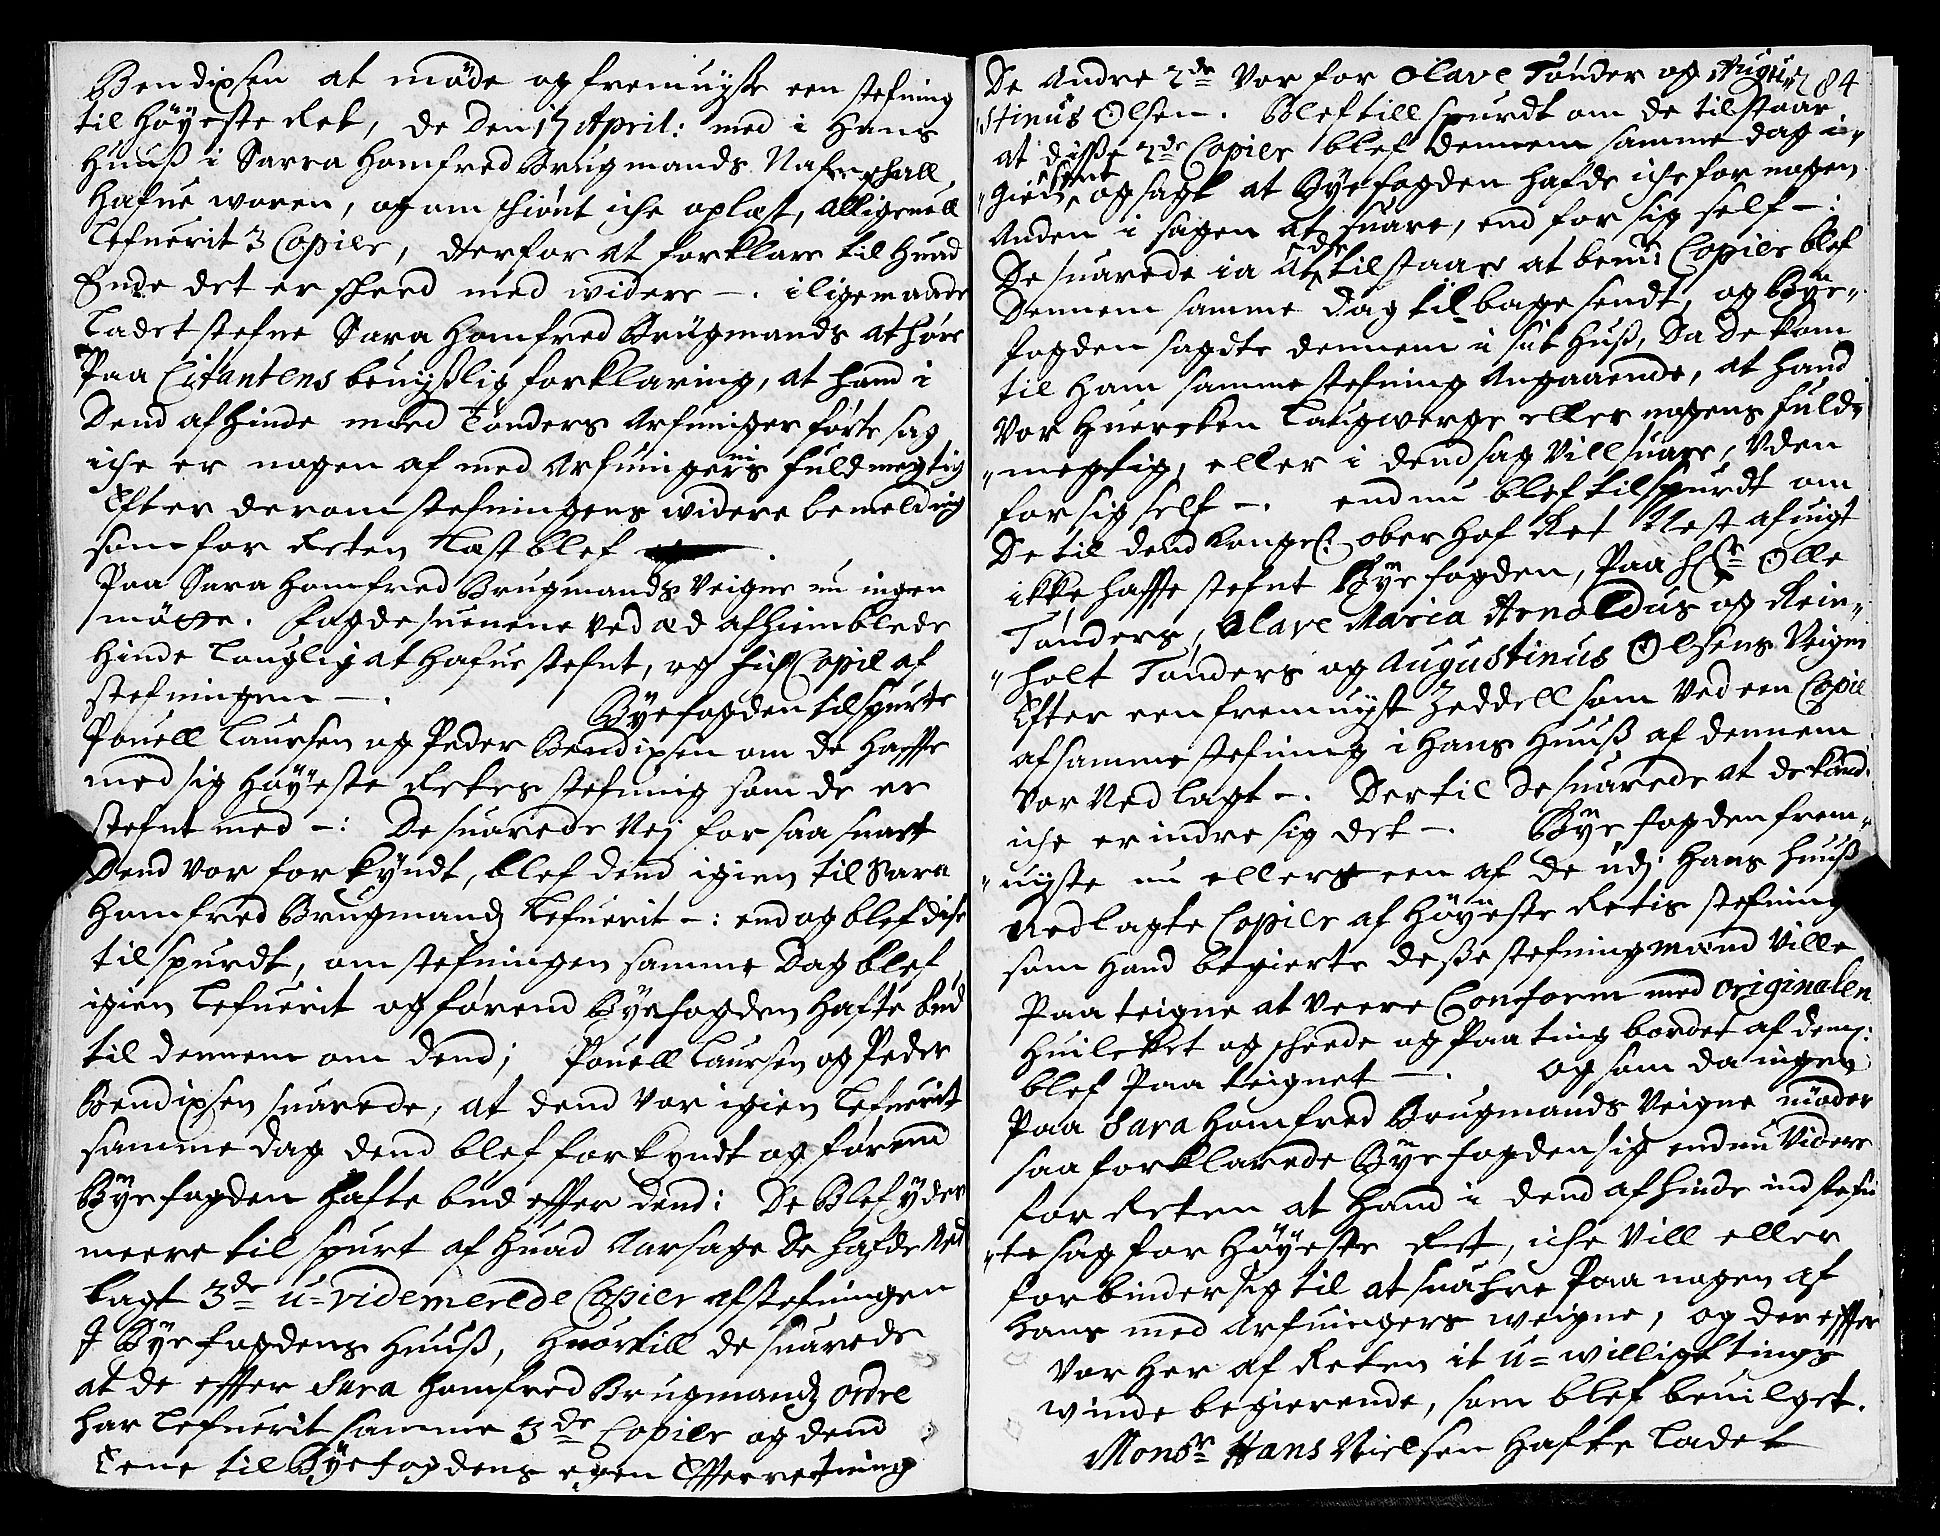 Bendixsen at möde og fremvijse een stefning
til höyeste Ret, de den 17 April: med i hans
Huuß i Sarra Homfred Brugmands Nafn
Hafue woren, og om schiönt iche oplæst, alligeuell
Lefuerit 3 Copier, derfor at forklare til huad
Ende det er scheed med widere -. iligemaade
Ladet stefne Sara Homfred Brugmands at höre
Paa Citantens beuijßlig forklaring, at hand i
dend af hinde med Tönders Arfuinger förte sag
iche er nogen af med Arfuingernis fuldmegtig
Efter derom stefningens widere bemelding
som for Reten læst blef
Paa Sara Homfred Brugmands Veigne nu ingen
mötte. Fogdesuenene ved æd afhiemblede
hinde lauglig at hafue stefnt, og fich Copie af
stefningen -.
Byefogden tilspurte
Pouell Laursen og Peder Bendixsen om de haffde
med sig höyeste Rettes stefning som de er
stefnt med -: De suarede Nej for saa snart
dend var forkyndt, blef dend igien til Sara
Homfred Brugmands Lefuerit -: end og blef disse
tilspurdt, om stefningen samme dag blef
igien lefuerit og förend Byefogden hafte bud
til dennem om dend; Pouell Laursen og Peder
Bendixsen suarede, at dend var igien lefuerit
samme dag dend blef forkyndt og förend
Byefogden hafte bud effter dend: De blef yder
meere til spurt af huad Aarsage de hafde Ned
lagt 3de u-videmerede Copier af stefningen
I Byefogdens Huuß, huortill de suarede
at de effter Sara Homfred Brugmands ordre
har lefuerit samme 3de Copier og dend
Eene til Byefogdens egen Effterretning
De Andre 2de Vor for Olave Tönder og Augu- 284
stinus Olsen. Blef till spurdt om de tilstaar
at disse 2de Copier blef dennem samme dag i-
gien sendt, og sagt at Byefogden hafde iche for nogen
Anden i sagen at suare, end for sig self -:
De suarede ia at de tilstaar at bemte Copier blef
dennem samme dag tilbage sendt, og Bye-
fogden sagde dennem i sit Huß, da de kom
til ham samme stefning Angaaende, at hand
vor huercken Laugwerge eller nogens fuld-
megtig, eller i dend sag vill suare, uden
for sig self -. endnu blef tilspurdt om
De til dend kongel: ober Hof Ret Nest afuigt
ikke haffde stefnt Byefogden, paa Olle
Tönders, Olave Maria Arnoldus og Rein-
holt Tönders og Augustinus Olsens Veigne
Efter een fremuijst Zeddell som ved een Copie
af samme stefning i hans Huuß af dennem
Vor Nedlagt -. Dertil de suarede at de kand
iche erindre sig det -. Byefogden frem-
uijste nu ellers een af de udj hans Huuß
Nedlagte Copier af Höyeste Retis stefning
som hand begierte deße stefningmænd ville
Paateigne at veere Conform med originalen
huilcket og scheede og Paa ting bordet af dem:
blef Paa teignet -. og som da ingen
Paa Sara Homfred Brugmands Veigne möder
saa forklarede Byefogden sig endnu videre
for Reten at hand i dend af hinde indstefn
te sag for Höyeste Ret, iche vill eller
forbinder sig til at suahre Paa nogen af
hans med Arfuingers weigne, og der effter
Vor her af Reten it u-willigt tings
winde begierende, som blef beuilget.
Monsr Hans Nielsen hafte ladet